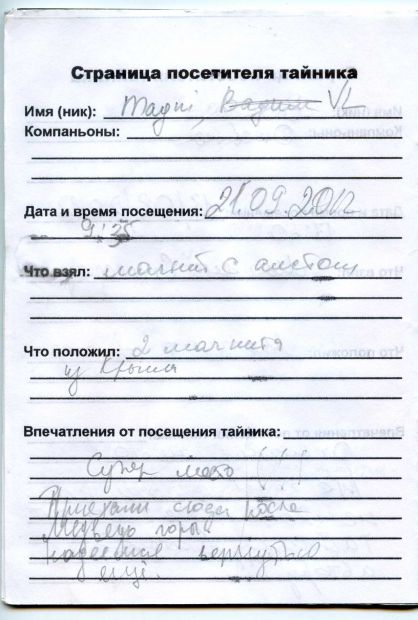 Страница посетителя тайника
Имя (ник): Magni, Вадим VL
Компаньоны:
Дата и время посещения: 21.09.2012
9:35
Что взял: магнит с аистом
Что положил: 2 магнита
из Крыма
Впечатления от посещения тайника:
Супер место (!!!)
Приехали сюда после
Медведь горы
надеемся вернуться
ещё.